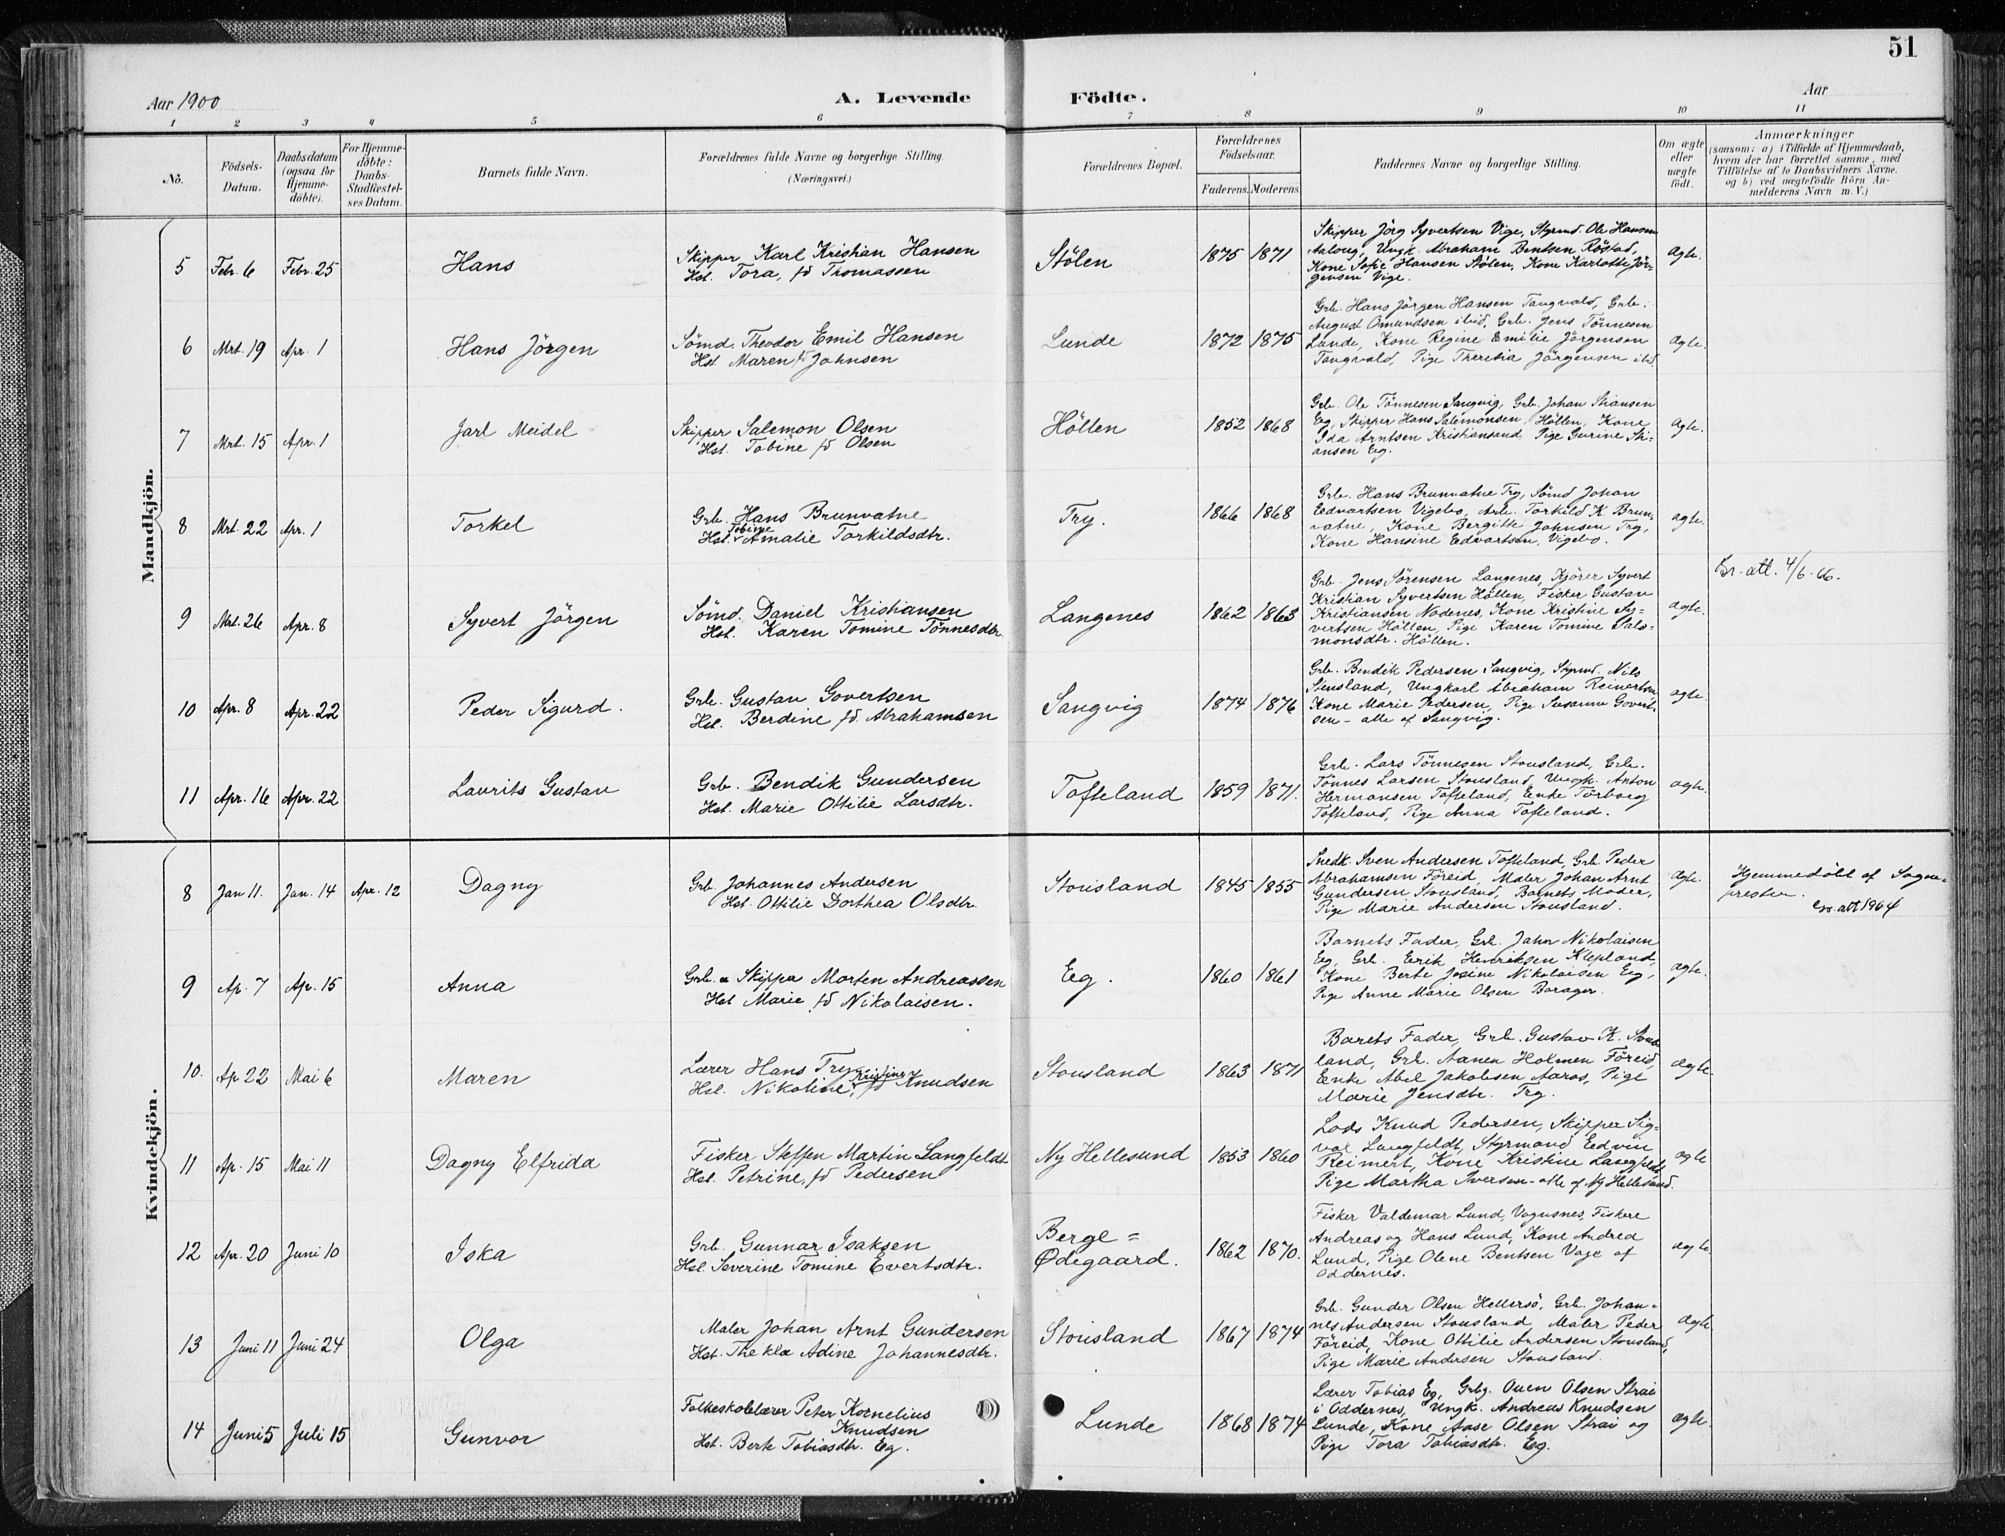 51
Aar 1900
A. Levende Födte.
Aar
1 2 3 4 5 6 7 8 9 10 11
No.
Födsels-Datum.
Daabsdatum (ogsaa for Hjemme-döbte).
For Hjemme-döbte: Daabs-Stadfæstel-ses Datum.
Barnets fulde Navn.
Forældrenes fulde Navne og borgerlige Stilling.
(Næringsvei.)
Forældrenes Bopæl.
Forældrenes Födselsaar.
Faderens. Moderens.
Faddernes Navne og borgerlige Stilling.
Om ægte eller uægte födt.
Anmærkninger
(saasom: a) i Tilfælde af Hjemmedaab,
hvem der har forrettet samme, med
Tilföielse af to Daabsvidners Navne.
og b) ved uægtefödte Börn An-
melderens Navn m. V.)
Mandkjön.
5 Febr. 6 Febr. 25 Hans
Skipper Karl Kristian Hansen
Hst. Tora, fd Thomassen
Stölen 1875 1871
Skipper Jörg Syvertsen Vige, Styrmd. Ole Hansen
Aaloug, Ungk. Abraham Bentsen Röstad,
Kone Sofie Hansen Stölen, Kone Karlotte Jör-
gensen Vige.
ægte.
6 Mrt. 19 Apr. 1 Hans Jörgen
Sömd. Theodor Emil Hansen
Hst. Maren fd Johnsen
Lunde 1872 1875
Grb. Hans Jörgen Hansen Tangvald, Grb.
August Omundsen ibid, Grb. Jens Tönnesen
Lunde, Kone Regine Emilie Jörgensen
Tangvald, Pige Theresia Jörgensen ibd.
ægte.
7 Mrt. 15 Apr. 1 Jarl Meidel
Skipper Salemon Olsen
Hst. Tobine fd Olsen
Höllen 1852 1868
Grb. Ole Tönnesen Langvig, Grb. Johan Stiansen
Eg, Skipper Hans Salemonsen Höllen, Kone
Ida Arntsen Kristiansand, Pige Gurine Sti-
ansen Eg.
ægte.
8 Mrt. 22 Apr. 1 Torkel
Grb. Hans Brunvatne
Hst. Tobine Amalie Torkildsdtr.
Try. 1866 1868
Grb. Hans Brunvatne Try, Sömd Johan
Edvartsen Vigebo, Arb. Torkild K. Brun-
vatne, Kone Bergitte Johnsen Try,
Kone Hansine Edvartsen, Vigebo.
ægte.
9 Mrt. 26 Apr. 8 Syvert Jörgen
Sömd. Daniel Kristiansen
Hst. Karen Tomine Tönnesdtr.
Langenes 1862 1863
Grb. Jens Sörensen Langenes, Kjörer Syvert
Kristian Syvertsen Höllen, Fisker Gustav
Kristiansen Nodenes, Kone Kristine Sy-
vertsen Höllen, Pige Karen Tomine Salo-
monsdtr. Höllen.
ægte.
att. 4/6-66.
10 Apr. 8 Apr. 22 Peder Sigurd.
Grb. Gustav Govertsen
Hst. Berdine fd Abrahamsen
Langvig 1874 1876
Grb. Bendik Pedersen Langvig, Styrmd. Nils
Stensland, Ungkarl Abraham Reinertsen,
Kone Marie Pedersen, Pige Susanne Govert-
sen - alle af Langvig.
ægte.
11 Apr. 16 Apr. 22 Laurits Gustav
Grb. Bendik Gundersen
Hst. Marie Ottilie Larsdtr.
Tofteland 1859 1871.
Grb. Lars Tönnesen Stousland, Grb.
Tönnes Larsen Stousland, Ungk. Anton
Hermansen Tofteland, Enke Torborg
Tofteland, Pige Anna Tofteland.
ægte.
Kvindekjön.
8 Jan 11. Jan. 14 Apr. 12 Dagny
Grb. Johannes Andersen
Hst. Ottilie Dorthea Olsdtr.
Stousland 1845 1855
Snedk. Sven Andersen Tofteland, Grb. Peder
Abrahamsen Föreid, Maler Johan Arnt
Gundersen Stousland, Barnets Moder,
Pige Marie Andersen Stousland.
ægte.
Hjemmedöbt af Sogne-
presten.
att 1964
9 Ap. 7 Apr. 15 Anna
Grb. & Skipper Morten Andreassen
Hst Marie fd Nikolaisen.
Eg. 1860 1861
Barnets Fader, Grb. Jahn Nikolaisen
Eg, Grb. Erik Henriksen Klepland,
Kone Berte Josine Nikolaisen Eg,
Pige Anne Marie Olsen Borager.
ægte.
10. Ap 22 Mai 6 Maren
Lærer Hans Try
Hst. Nikoline Kristine, fd Knudsen
Stousland 1863 1871
Barets Fader, Grb. Gustav K. Stous-
land, Grb. Aanen Holmen Föreid,
Enke Abel Jakobsen Aaros, Pige
Marie Jensdtr. Try.
ægte.
11 Ap. 15 Mai 11 Dagny Elfrida
Fisker Steffen Martin Langfeldt
Hst. Petrine, fd Pedersen
Ny Hellesund 1853 1860
Lods Knud Pedersen, Skipper Sig-
val Langfeldt, Styrmand Edvin
Reimert, Kone Kristine Langfeldt
Pige Martha Iversen - alle af Ny Hellesund.
ægte
12 Apr. 20 Juni 10 Iska
Grb. Gunnar Isaksen
Hst. Severine Tomine Evertsdtr.
Berge =
Ødegaard. 1862 1870.
Fisker Valdemar Lund, Vognsnes, Fiskere
Andreas og Hans Lund, Kone Andrea
Lund, Pige Olene Bentsen Vaje af
Oddernes.
ægte.
13 Juni 11 Juni 24 Olga
Maler Johan Arnt Gundersen
Hst. Thekla Adine Johannesdtr.
Stousland 1867 1874
Grb. Gunder Olsen Hellersö, Grb. Johan-
nes Andersen Stousland, Maler Peder
Föreid, Kone Ottilie Andersen Stousland,
Pige Marie Andersen Stousland.
ægte
14 Juni 5 Juli 15 Gunvor
Folkeskolelærer Peter Kornelius
Knudsen
Hst. Berte Tobiasdtr. Eg.
Lunde 1868 1874
Lærer Tobias Eg, Grbg. Ouen Olsen Strai
i Oddernes, Ungk. Andreas Knudsen
Lunde, Kone Aase Olsen Strai og
Pige Tora Tobiasdtr. Eg.
ægte.